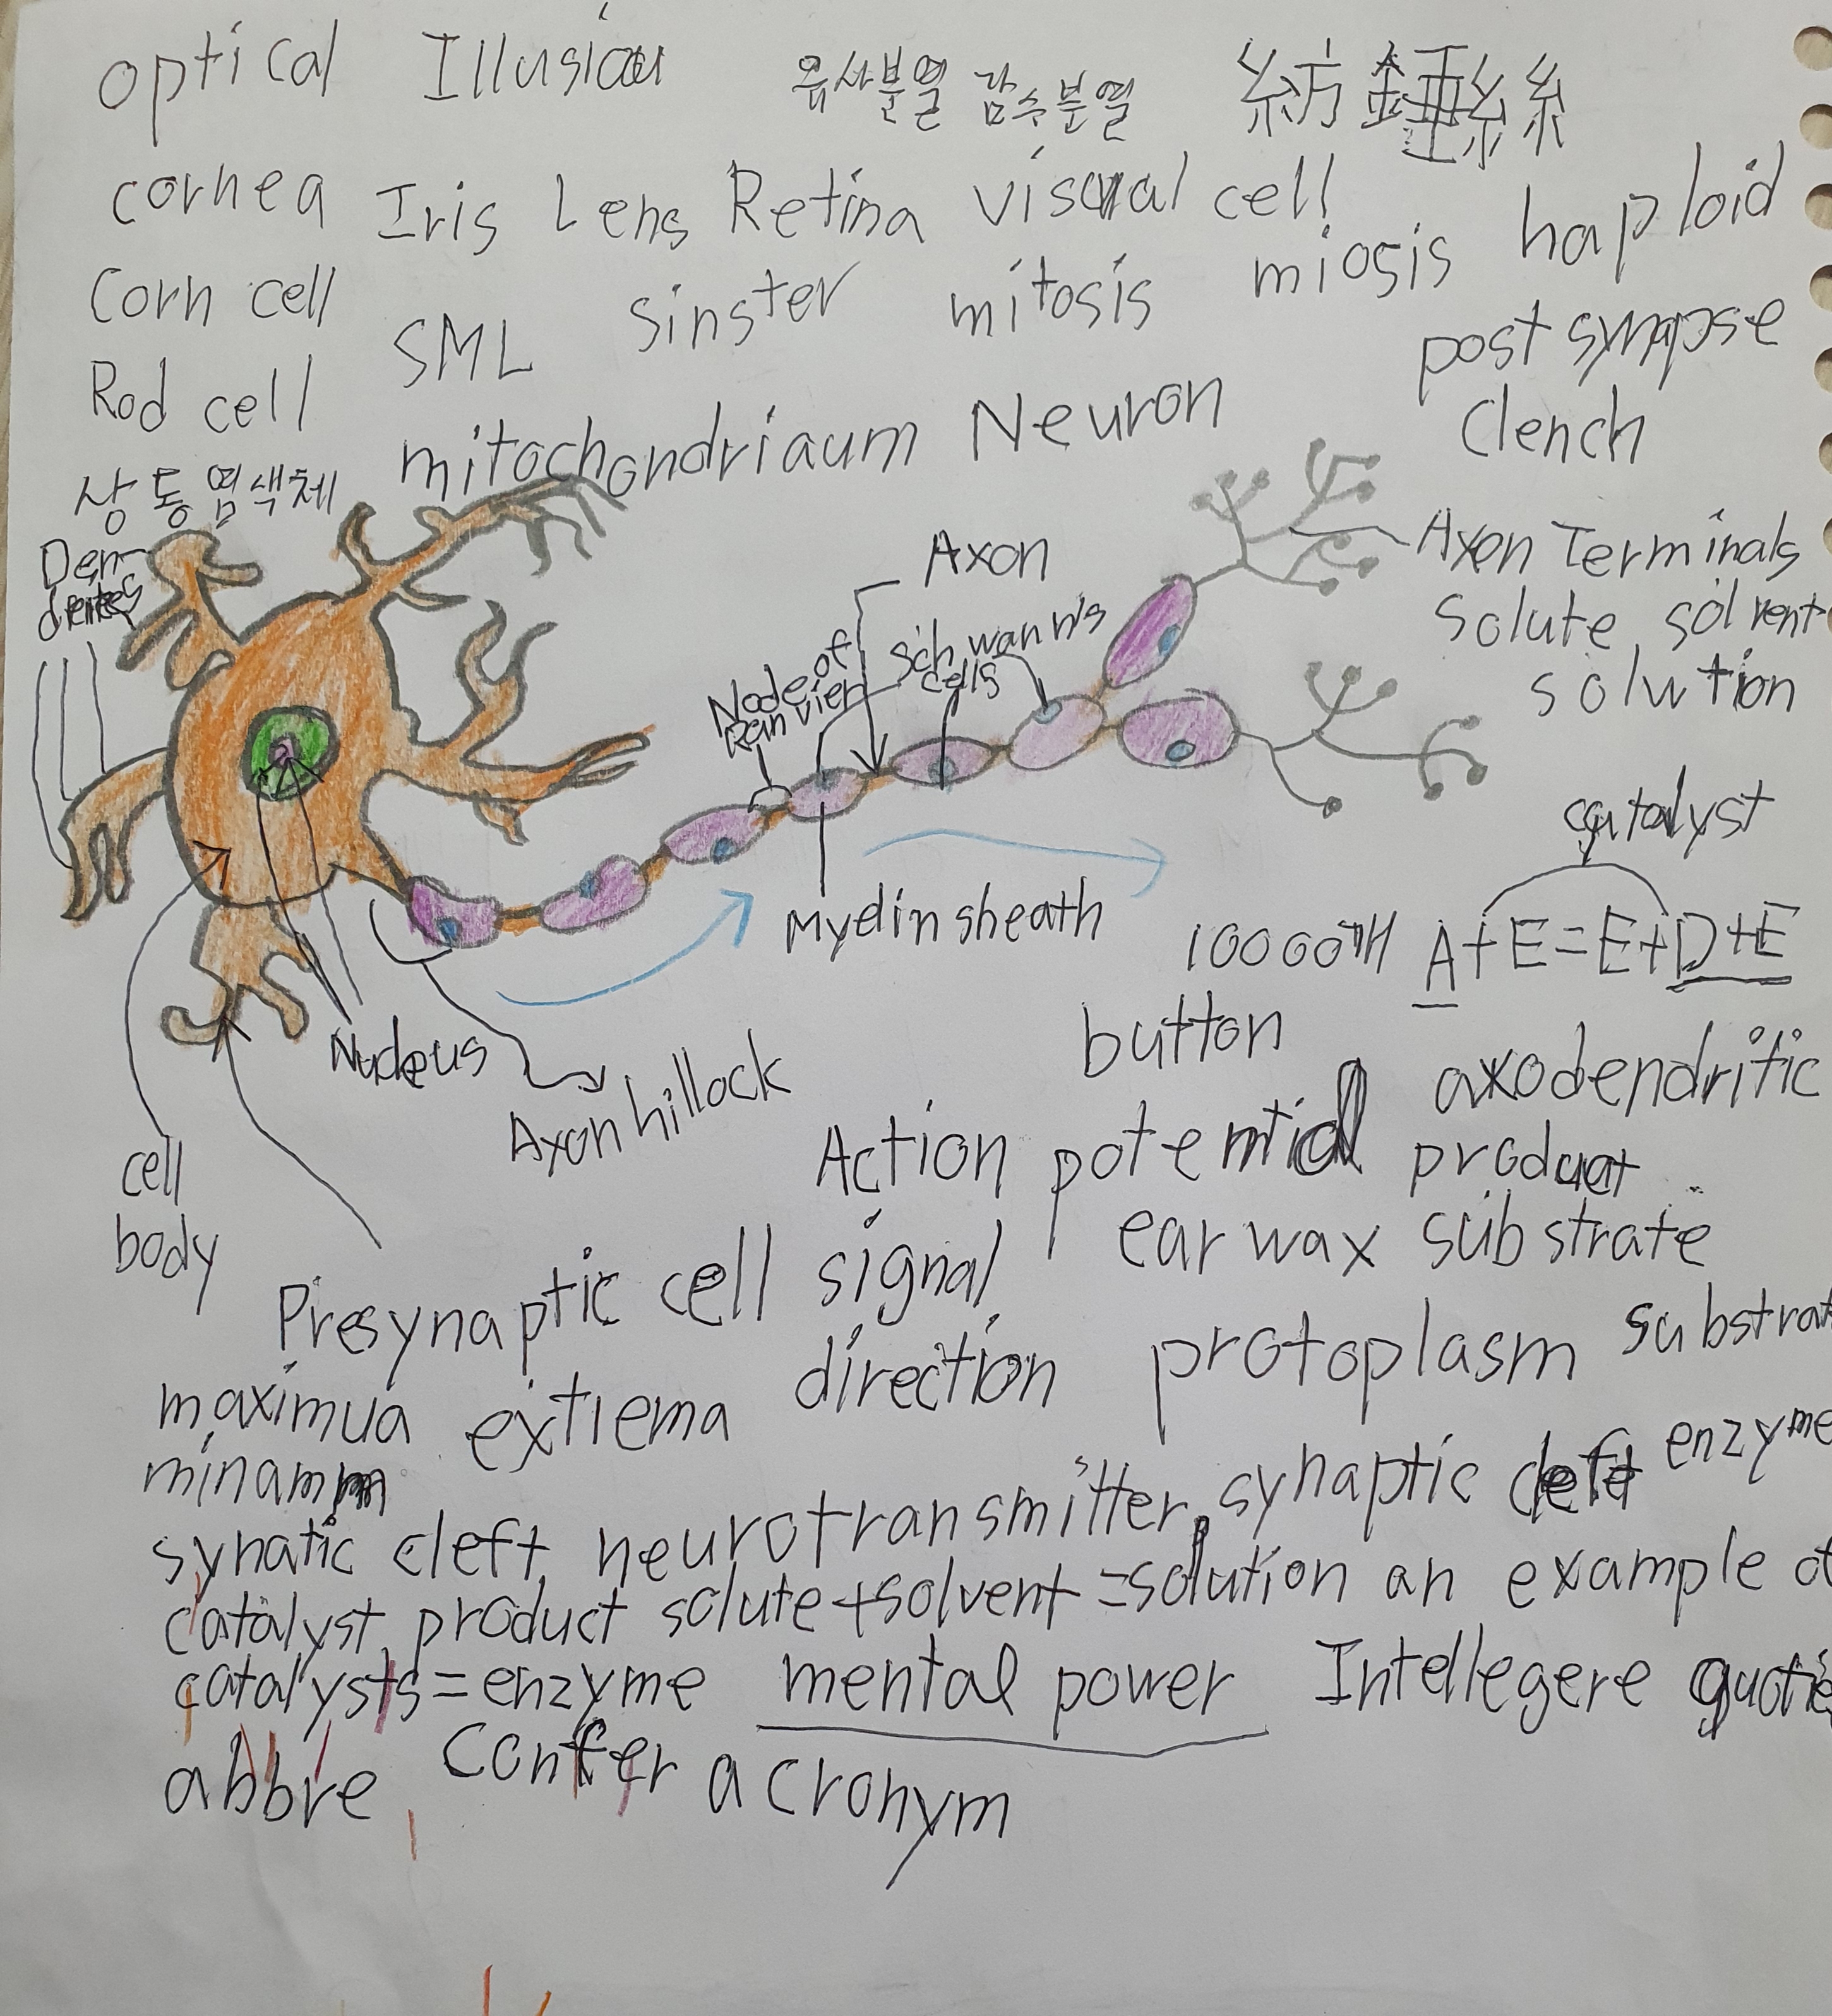 optical Illusion 유사분열 감수분열 紡錘絲
cornea Iris Lens Retina visual cell haploid
Corn cell SML sinster mitosis miosis
Rod cell mitochondriaum Neuron post synapse
clench
상동염색체
Den-
drites
Axon
Axon Terminals
Node of
Ranvier
Schwann's
cells
solute solvent
solution
catalyst
Myelin sheath
10000TH A+E=E+D+E
button
Nucleus
Axon hillock
axodendritic
cell
body
Action potential product
Presynaptic cell signal ear wax substrate
direction protoplasm substrat
maximua extrema
minamm
synatic cleft neurotransmitter, synaptic cleft enzyme
catalyst, product solute+solvent=solution an example of
catalysts=enzyme mental power Intellegere quotie
abbre Confer acronym